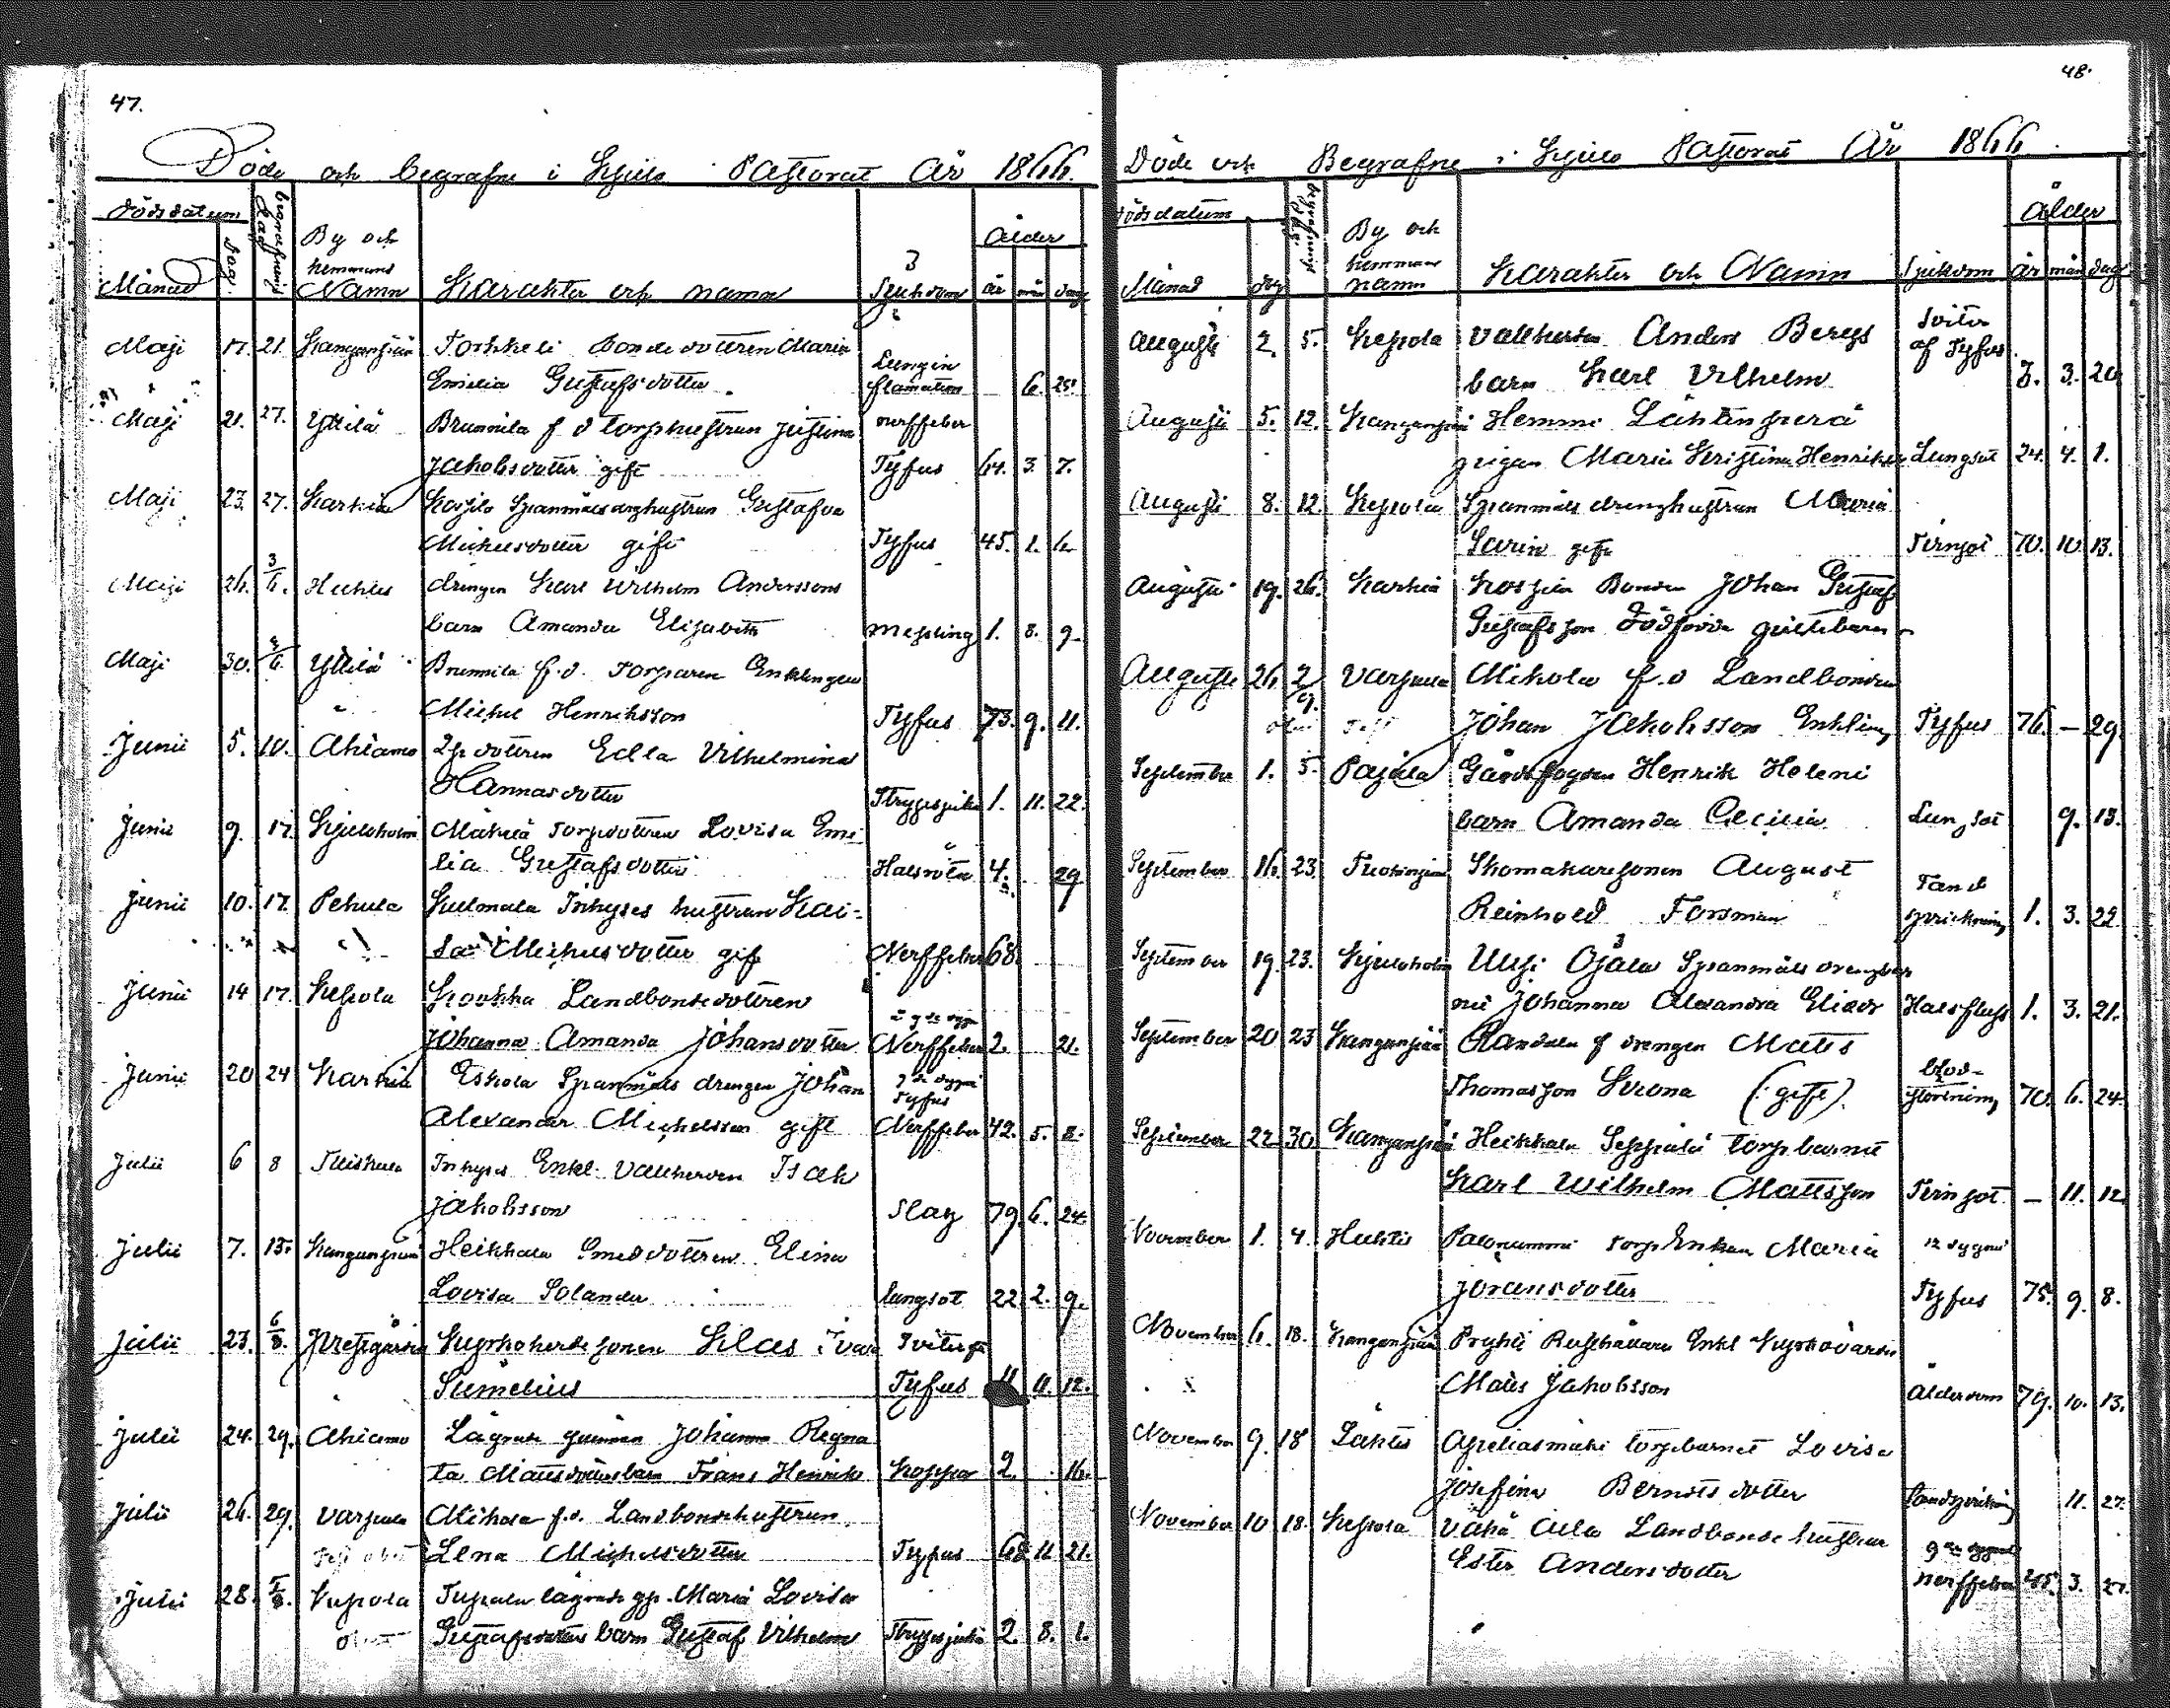 47.
Döde och begrafne i Kjulo Pastorat År 1866.
Dödsdatum
begrafnings dag
By och
Ålder
Månad
dag
hemmans
Namn
Karakter och namn
Sjukdom
år
mån
dag
Maji 17. 21. Kanganpää Torkkeli Bondedottren Maria
Lungin
Emilia Gustafsdotter flamation 6. 25.
Maji 21. 27. Yttilä Brunnila f d torphustrun Justina nerffeber
Jakobsdotter gift Tyfus 64. 3. 7.
Maji 23. 27. Karhia Spanmålsdrghustrun Gustafva
Michelsdotter gift Tyfus 45. 1. 6.
Maji 26. 3/6. Huhtis drengen Karl Wilhelm Anderssons
barn Amanda Elisabeth messling 1. 8. 9.
Maji 30. 3/6. Yttilä Brunnila f.d. Torparen Enklingen
Michel Henriksson Tyfus 73. 9. 11.
Junii 5. 10. Ahiamo dottren Edla Vilhelmina
Hannasdotter 1. 11. 22.
Junii 9. 17. Kjuloholm Mäkelä Torpdottren Lovisa Emi
lia Gustafsdotter Halsröta 4. 29
Junii 10. 17. Pehula Kulmala Inhyses hustrun Kai-
sa Michelsdotter gift Nerffeber 68.
Junii 14 17. Kepola Landbondedottren
Johanna Amanda Johansdotter Nerffeber 2. 21.
Junii 20 24 Karhia Eskola Spanmåls drengen Johan
Tyfus
Alexander Michelsson gift Nerffeber 42. 5. 8.
Julii 6 8 Inhyses Enkl. Vallherden Isak
Jakobsson Slag 79. 6. 24.
Julii 7. 15. Kanganpää Heikkala Smeddottren Elina
Lovisa Solander lungsot 22 2. 9.
Julii 23. 6/8. Prestgården Kyrkoherdesonen Silas Ivar
Sumelius Tyfus 11. 12.
Julii 24. 29. Ahiamo Lägrade qvinnan Johanna Regna
ta Mattsdotters barn Frans Henrik Koppor 2. 16.
Julii 26. 29. Varpula Mikola f.d. Landbondehustrun
Lena Michelsdotter Tyfus 68 11. 21.
Julii 28. 5/8. Kepola lägrade qp. Maria Lovisa
Gustafsdotters barn Gustaf Vilhelm 2. 8. 1.
48.
Döde och Begrafne i Kjulo Pastorat År 1866.
Dödsdatum
begrafnings dag
By och
Ålder
Månad
dag
hemmans
namn
Karakter och Namn
Sjukdom
år
mån
dagar
Augusti 2. 5. Kepola Vallherden Anders Bergs
af Tyfus
barn Karl Vilhelm 3. 20
Augusti 5. 12. Kanganpää Hemmi Lähtenperä
pigan Maria Kristina Henriks Lungsot 24. 4. 1.
Augusti 8. 12. Kepola Spanmåls drenghustrun Maria
gift Tärngot 70. 10 13.
Augusti 19. 26. Karhia Bonden Johan Gustaf
Gustafsson Dödfödda gossebarn
Augusti 26 2/9. Varpula Mikola f.d Landbonden
Johan Jakobsson Enkling Tyfus 76. — 29
September 1. 5. Pajula Gårdsfogden Henrik Heleni
barn Amanda Cecilia Lungsot 9. 13.
September 16. 23. Skomakaresonen August
Tand
Reinhold Forsman sprickning 1. 3. 22
September 19. 23. Kjuloholm Uusi Ojala Spanmåls drengbar
net Johanna Alexandra Eliadr Halsfluss 1. 3. 21.
September 20 23 Kanganpää Randala f drengen Matts
blod-
Thomasson Strona (: gift) störtning 70. 6. 24.
September 22 30 Kanganpää Heikkala Seppälä torpbarnet
Karl Wilhelm Mattsson — 11. 12
November 1. 4. Huhtis Palonummi torpEnkan Maria 12 dygnet
Jöransdotter Tyfus 75. 9. 8.
November 6. 18. Kanganpää Prykti Rusthållare Enkl Kyrkovärden
Matts Jakobsson Ålderdom 79. 10. 13.
November 9. 18 Lähtis torpbarnet Lovisa
Josefina Berndtsdotter Tandsprickning 11. 27.
November 10 18. Kepola Vähä Aula Landbonde hustrun
Ester Andersdotter nerffeber 3. 27.